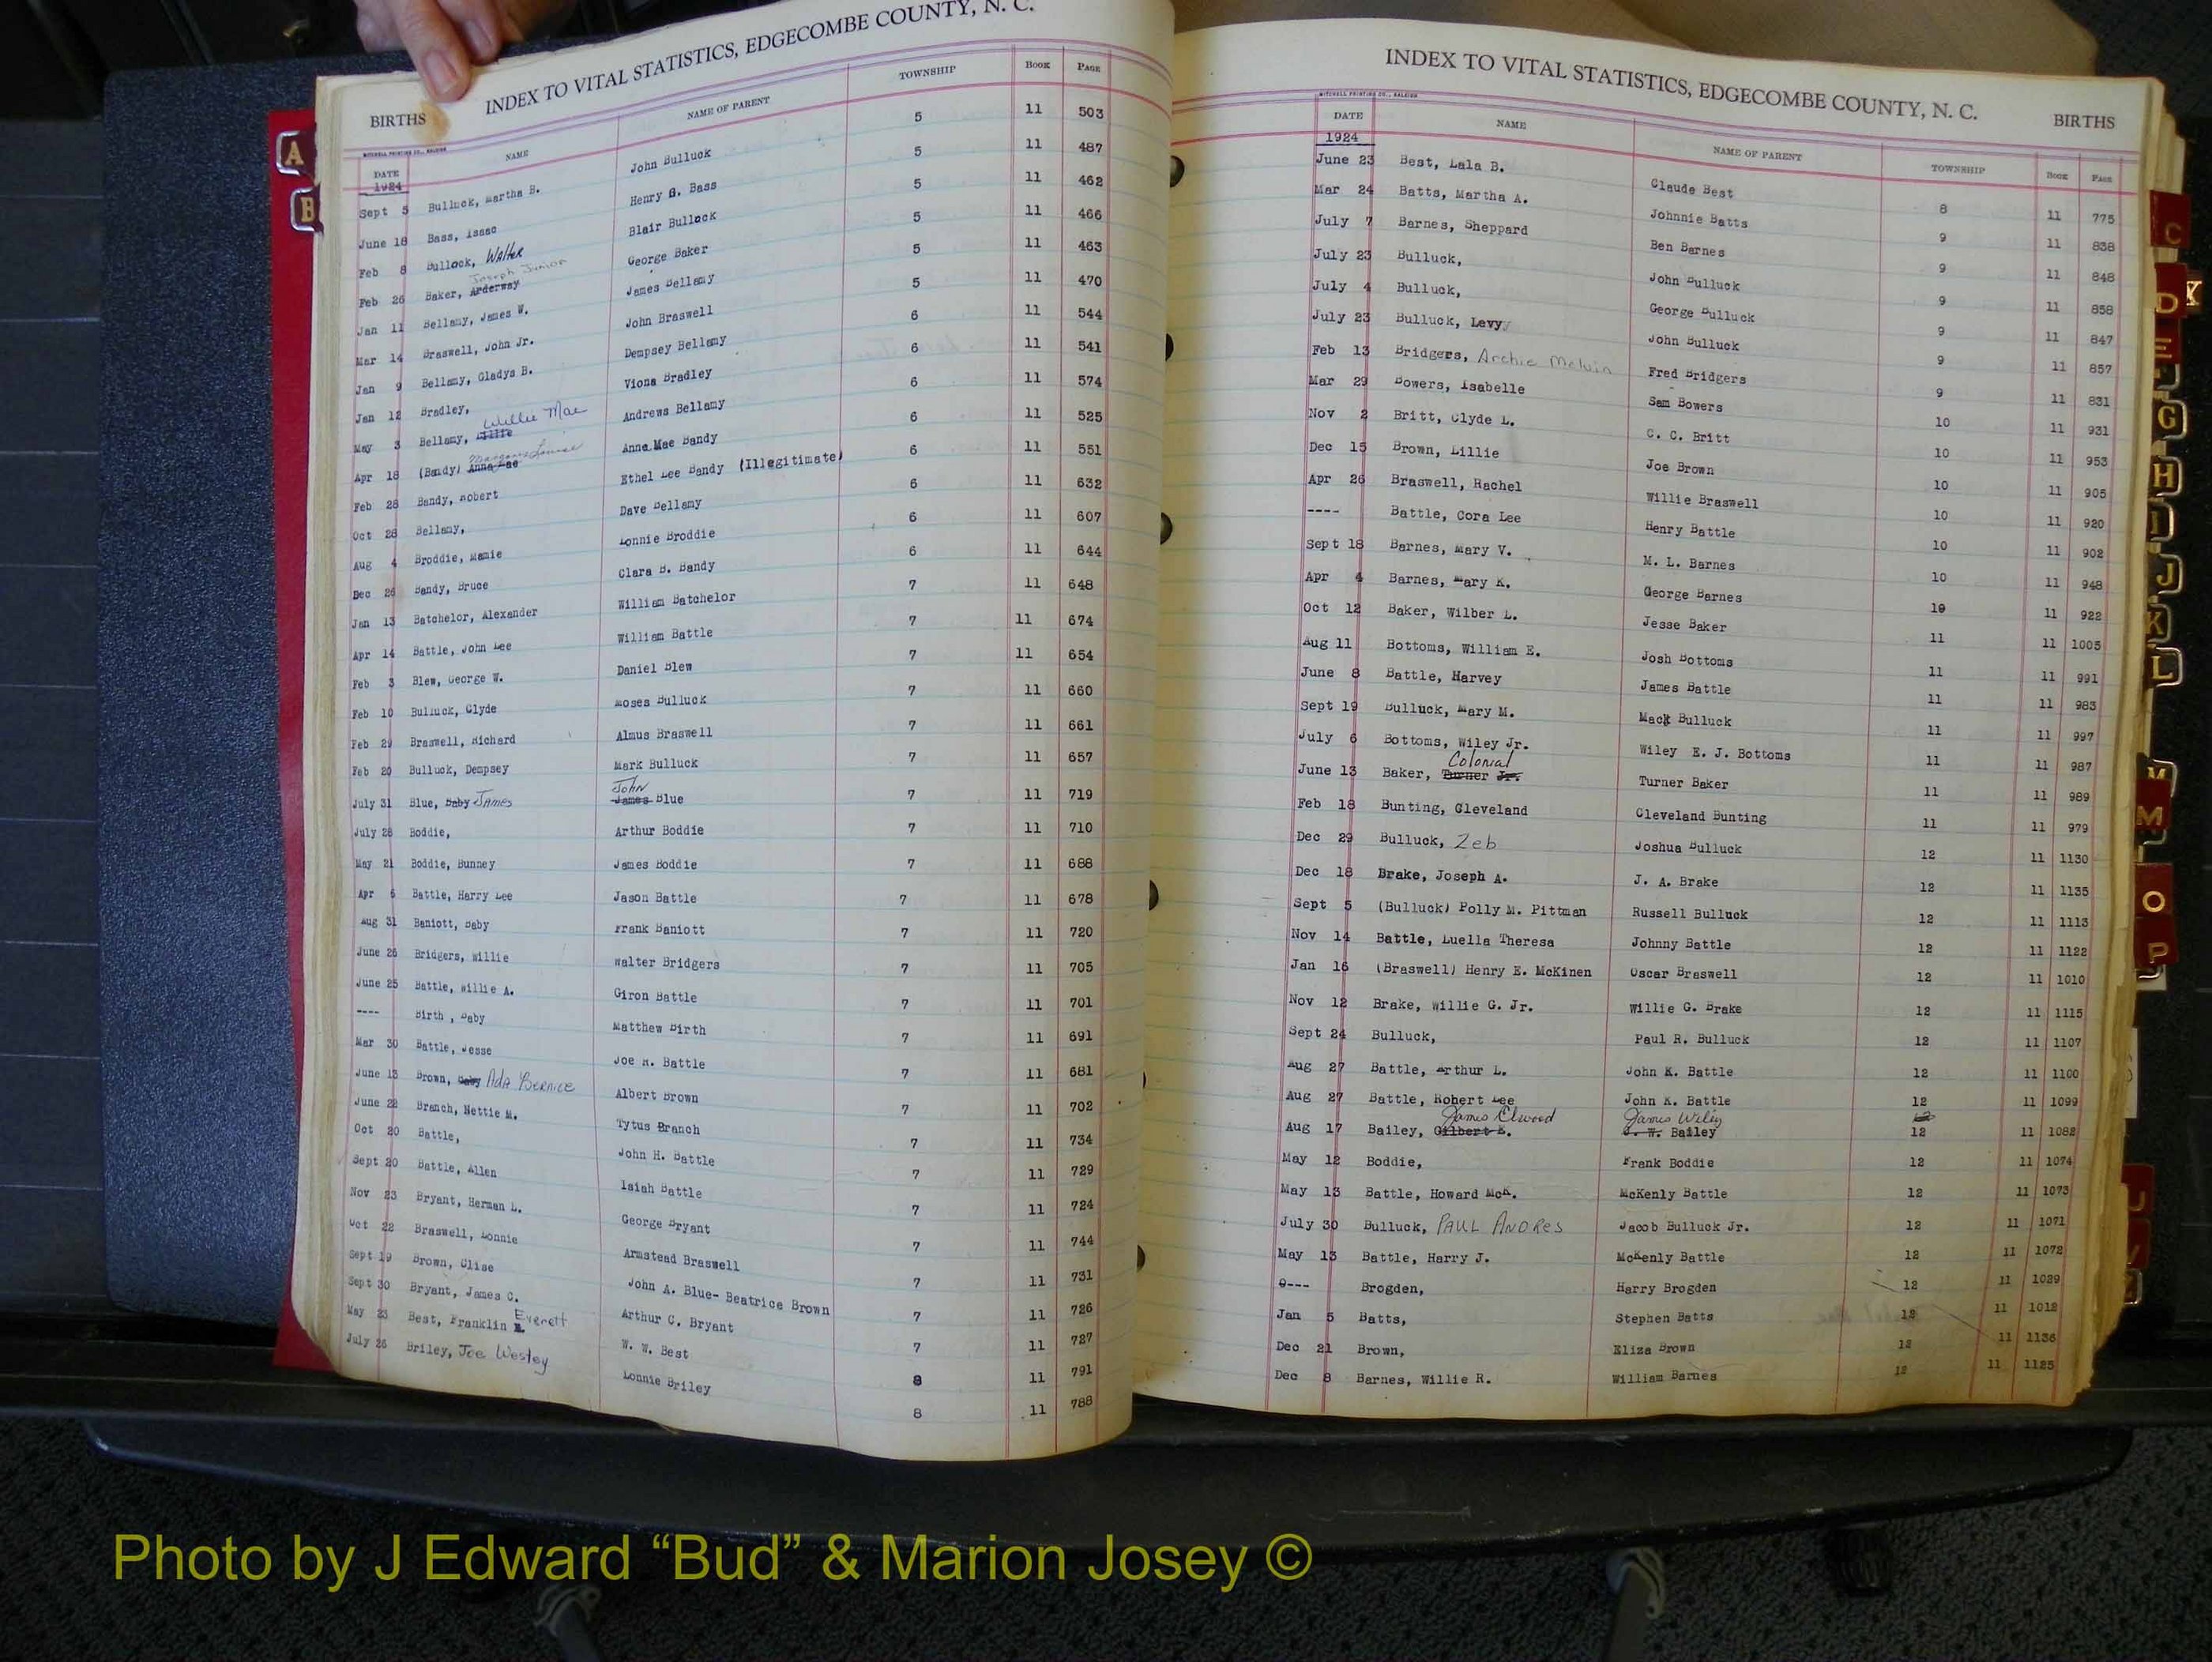 INDEX TO VITAL STATISTICS, EDGECOMBE COUNTY, N. C.
BIRTHS
MITCHELL PRINTING CO., RALEIGH
DATE NAME NAME OF PARENT TOWNSHIP BOOK PAGE
1924
Sept 5 Bulluck, Martha B. John Bulluck 5 11 503
June 18 Bass, Isaac Henry G. Bass 5 11 487
Feb 8 Bullock, Walter Blair Bullock 5 11 462
Joseph Junior
Feb 26 Baker, Arderway George Baker 5 11 466
Jan 11 Bellamy, James W. James Bellamy 5 11 463
Mar 14 Braswell, John Jr. John Braswell 5 11 470
Jan 9 Bellamy, Gladys B. Dempsey Bellamy 6 11 544
Jan 12 Bradley, Viona Bradley 6 11 541
Willie Mae
May 3 Bellamy, Andrews Bellamy 6 11 574
Apr 18 (Bandy) Anna Mae Anna Mae Bandy 6 11 525
Feb 28 Bandy, Robert Ethel Lee Bandy (Illegitimate) 6 11 551
Oct 28 Bellamy, Dave Bellamy 6 11 632
Aug 4 Broddie, Mamie Lonnie Broddie 6 11 607
Dec 26 Bandy, Bruce Clara B. Bandy 6 11 644
Jan 13 Batchelor, Alexander William Batchelor 7 11 648
Apr 14 Battle, John Lee William Battle 7 11 674
Feb 3 Blew, George W. Daniel Blew 7 11 654
Feb 10 Bulluck, Clyde Moses Bulluck 7 11 660
Feb 29 Braswell, Richard Almus Braswell 7 11 661
Feb 20 Bulluck, Dempsey Mark Bulluck 7 11 657
John
July 31 Blue, Baby James James Blue 7 11 719
July 28 Boddie, Arthur Boddie 7 11 710
May 21 Boddie, Bunney James Boddie 7 11 688
Apr 6 Battle, Harry Lee Jason Battle 7 11 678
Aug 31 Baniott, Baby Frank Baniott 7 11 720
June 26 Bridgers, Willie Walter Bridgers 7 11 705
June 25 Battle, Willie A. Giron Battle 7 11 701
---- Birth, Baby Matthew Birth 7 11 691
Mar 30 Battle, Jesse Joe R. Battle 7 11 681
June 13 Brown, Baby Ada Bernice Albert Brown 7 11 702
June 22 Branch, Nettie M. Tytus Branch 7 11 734
Oct 20 Battle, John H. Battle 7 11 729
Sept 20 Battle, Allen Isiah Battle 7 11 724
Nov 23 Bryant, Herman L. George Bryant 7 11 744
Oct 22 Braswell, Lonnie Armstead Braswell 7 11 731
Sept 19 Brown, Clise John A. Blue- Beatrice Brown 7 11 726
Sept 30 Bryant, James C. Arthur C. Bryant 7 11 727
May 23 Best, Franklin Everett W. W. Best 8 11 791
July 26 Briley, Joe Westey Lonnie Briley 8 11 788
INDEX TO VITAL STATISTICS, EDGECOMBE COUNTY, N. C.
BIRTHS
MITCHELL PRINTING CO., RALEIGH
DATE NAME NAME OF PARENT TOWNSHIP BOOK PAGE
1924
June 23 Best, Lala B. Claude Best 8 11 775
Mar 24 Batts, Martha A. Johnnie Batts 9 11 838
July 7 Barnes, Sheppard Ben Barnes 9 11 848
July 23 Bulluck, John Bulluck 9 11 858
July 4 Bulluck, George Bulluck 9 11 847
July 23 Bulluck, Levy John Bulluck 9 11 857
Feb 13 Bridgers, Archie Melvin Fred Bridgers 9 11 831
Mar 29 Bowers, Isabelle Sam Bowers 10 11 931
Nov 2 Britt, Clyde L. C. C. Britt 10 11 953
Dec 15 Brown, Lillie Joe Brown 10 11 905
Apr 26 Braswell, Rachel Willie Braswell 10 11 920
---- Battle, Cora Lee Henry Battle 10 11 902
Sept 18 Barnes, Mary V. M. L. Barnes 10 11 948
Apr 4 Barnes, Mary K. George Barnes 10 11 922
Oct 12 Baker, Wilber L. Jesse Baker 11 11 1005
Aug 11 Bottoms, William E. Josh Bottoms 11 11 991
June 8 Battle, Harvey James Battle 11 11 983
Sept 19 Bulluck, Mary M. Mack Bulluck 11 11 997
July 6 Bottoms, Wiley Jr. Wiley E. J. Bottoms 11 11 987
Colonial
June 13 Baker, Turner Jr. Turner Baker 11 11 989
Feb 18 Bunting, Cleveland Cleveland Bunting 11 11 979
Dec 29 Bulluck, Zeb Joshua Bulluck 12 11 1130
Dec 18 Brake, Joseph A. J. A. Brake 12 11 1135
Sept 5 (Bulluck) Polly M. Pittman Russell Bulluck 12 11 1113
Nov 14 Battle, Luella Theresa Johnny Battle 12 11 1122
Jan 16 (Braswell) Henry E. McKinen Oscar Braswell 12 11 1010
Nov 12 Brake, Willie G. Jr. Willie G. Brake 12 11 1115
Sept 24 Bulluck, Paul R. Bulluck 12 11 1107
Aug 27 Battle, Arthur L. John K. Battle 12 11 1100
Aug 27 Battle, Robert Lee John K. Battle 12 11 1099
James Elwood James Wiley
Aug 17 Bailey, Gilbert E. J. W. Bailey 12 11 1082
May 12 Boddie, Frank Boddie 12 11 1074
May 13 Battle, Howard McK. McKenly Battle 12 11 1073
July 30 Bulluck, PAUL ANDRES Jacob Bulluck Jr. 12 11 1071
May 13 Battle, Harry J. McKenly Battle 12 11 1072
0--- Brogden, Harry Brogden 12 11 1029
Jan 5 Batts, Stephen Batts 12 11 1012
Dec 21 Brown, Eliza Brown 12 11 1136
Dec 8 Barnes, Willie R. William Barnes 12 11 1125
A
B
C
K
D
E
F
G
H
I
J
K
L
M
M
O
P
U
V
Photo by J Edward “Bud” & Marion Josey ©